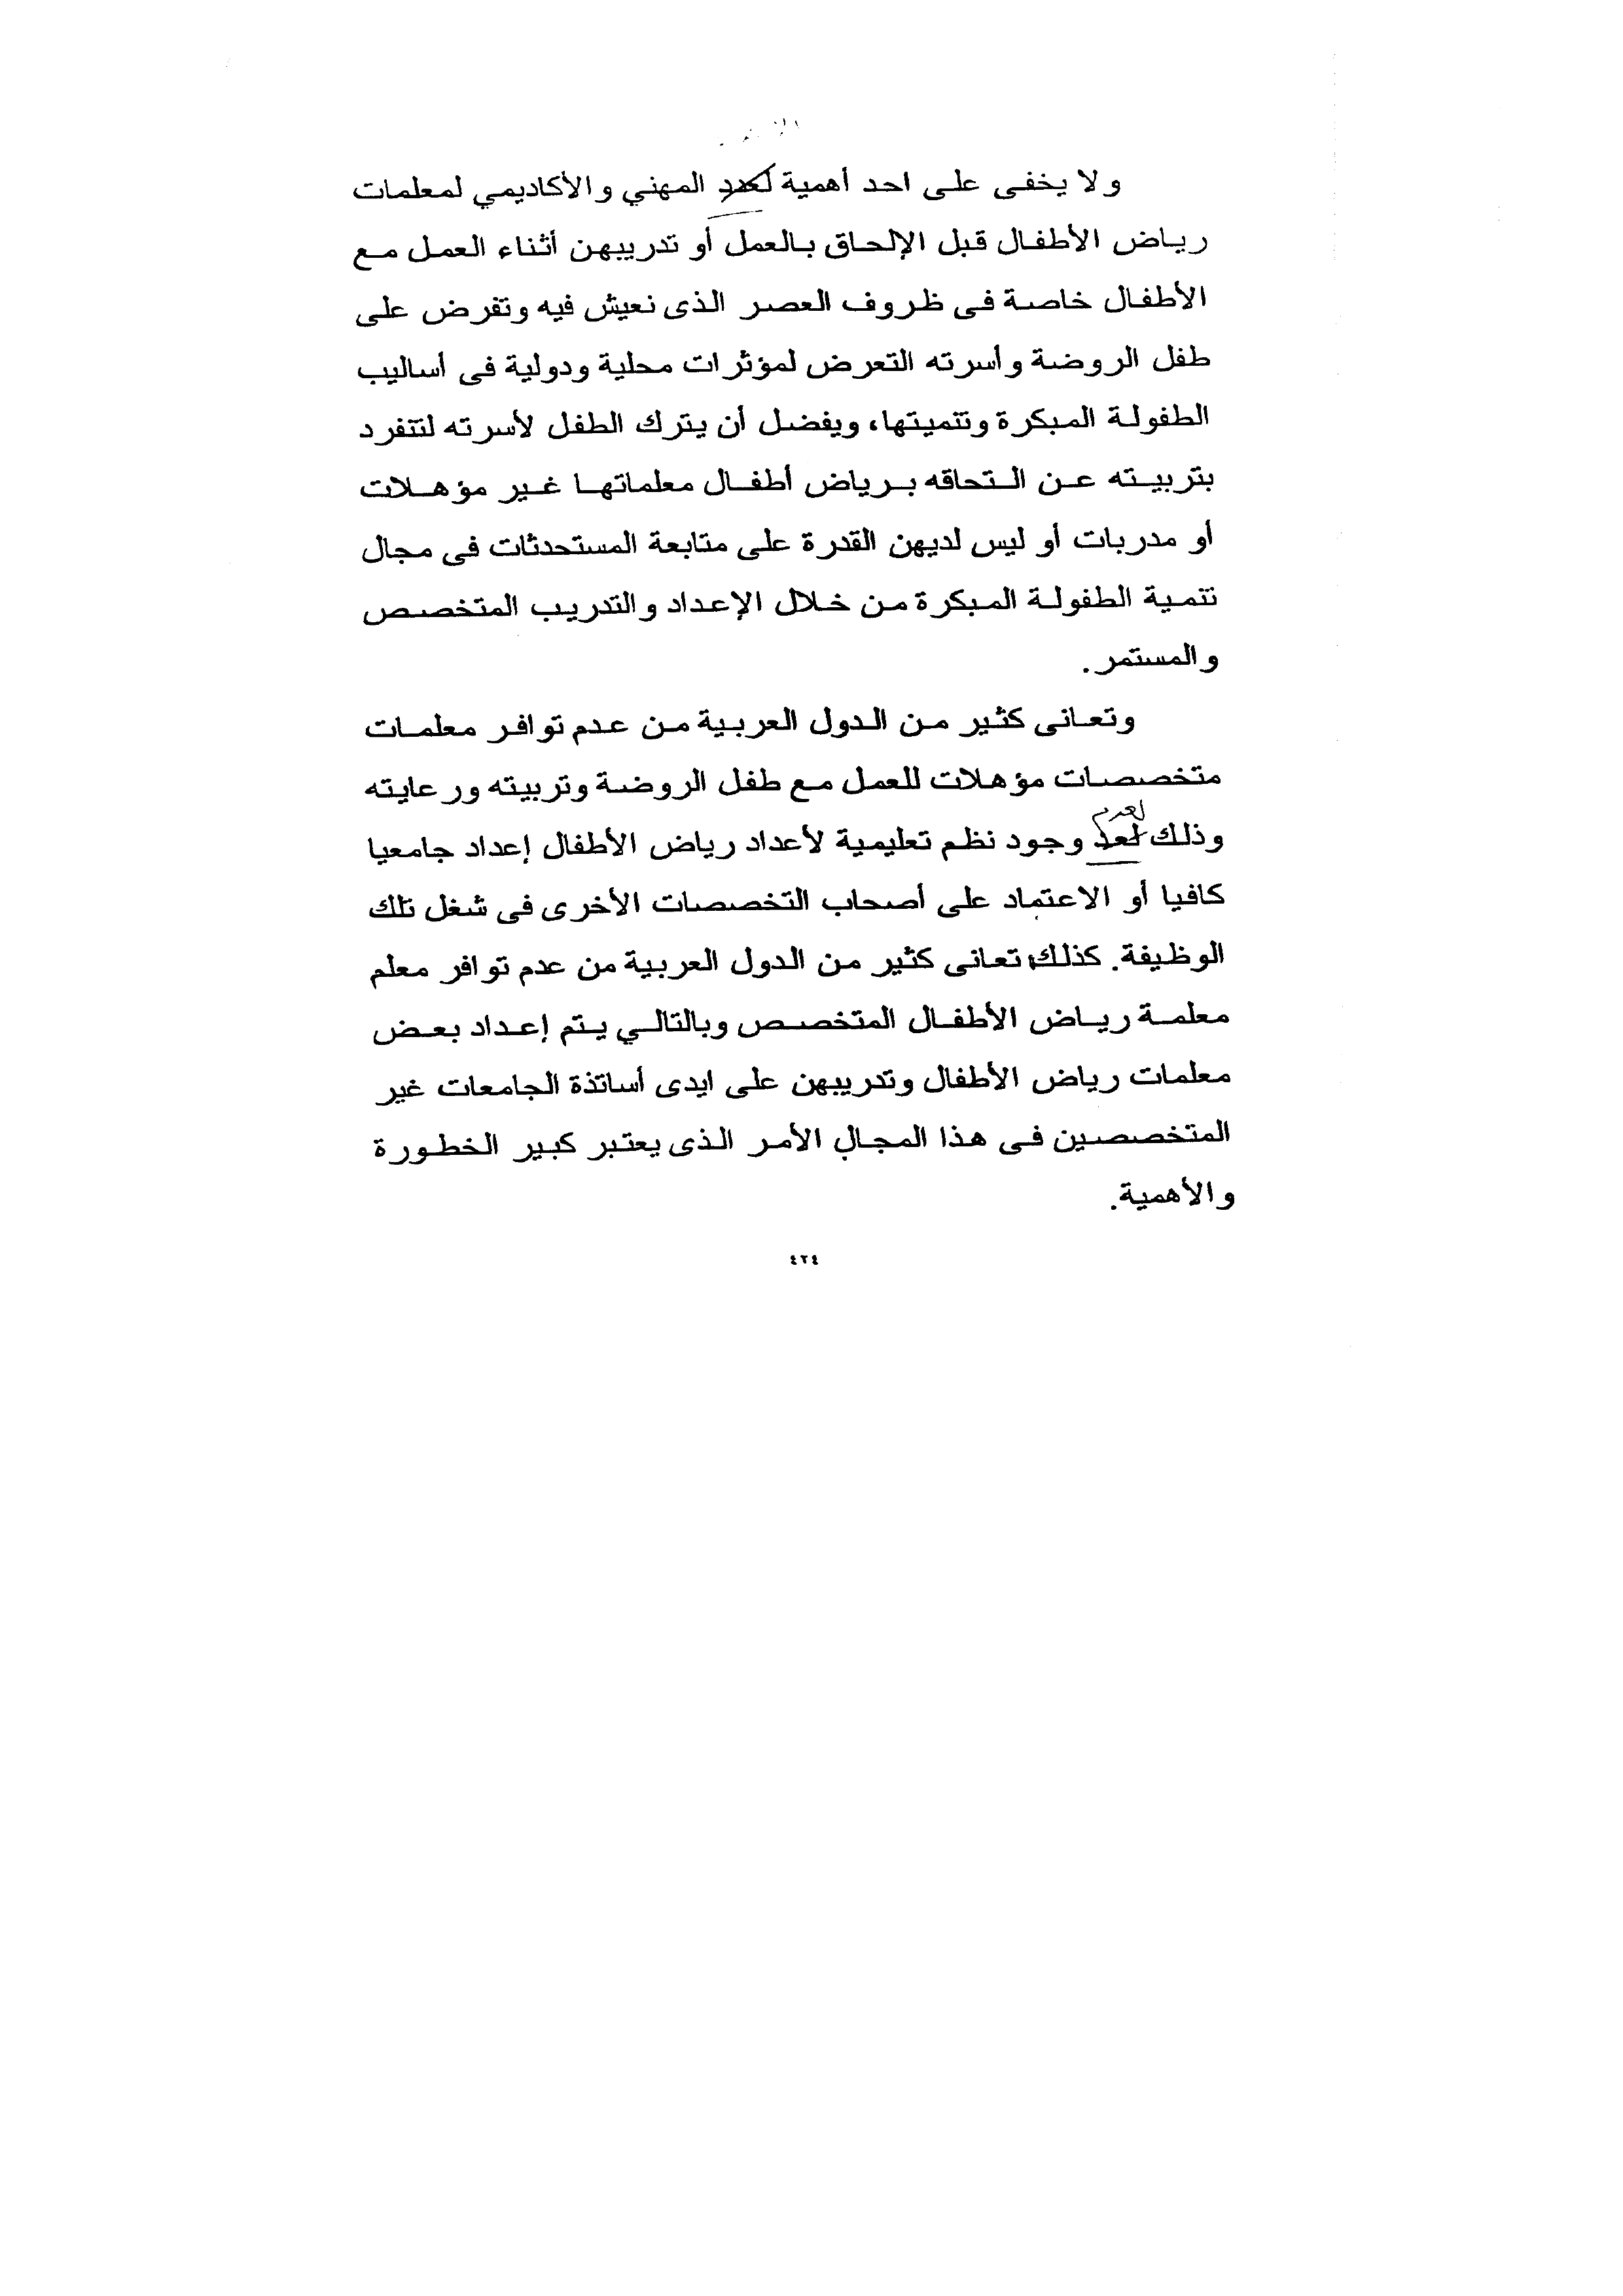 ولا يخفى على احد أهمية لعدد المهني والأكاديمي لمعلمات
رياض الأطفال قبل الإلحاق بالعمل أو تدريبهن أثناء العمل مع
الأطفال خاصة فى ظروف العصر الذى نعيش فيه وتفرض على
طفل الروضة وأسرته التعرض لمؤثرات محلية ودولية فى أساليب
الطفولة المبكرة وتنميتها، ويفضل أن يترك الطفل لأسرته لتتفرد
بتربيته عن التحاقه برياض أطفال معلماتها غير مؤهلات
أو مدربات أو ليس لديهن القدرة على متابعة المستحدثات فى مجال
تنمية الطفولة المبكرة من خلال الإعداد والتدريب المتخصص
والمستمر.
وتعانى كثير من الدول العربية من عدم توافر معلمات
متخصصات مؤهلات للعمل مع طفل الروضة وتربيته ورعايته
لعدم
وذلك لعد وجود نظم تعليمية لأعداد رياض الأطفال إعداد جامعيا
كافيا أو الاعتماد على أصحاب التخصصات الأخرى فى شغل تلك
الوظيفة. كذلك تعانى كثير من الدول العربية من عدم توافر معلم
معلمة رياض الأطفال المتخصص وبالتالي يتم إعداد بعض
معلمات رياض الأطفال وتدريبهن على ايدى أساتذة الجامعات غير
المتخصصين فى هذا المجال الأمر الذى يعتبر كبير الخطورة
والأهمية.
٤٢٤